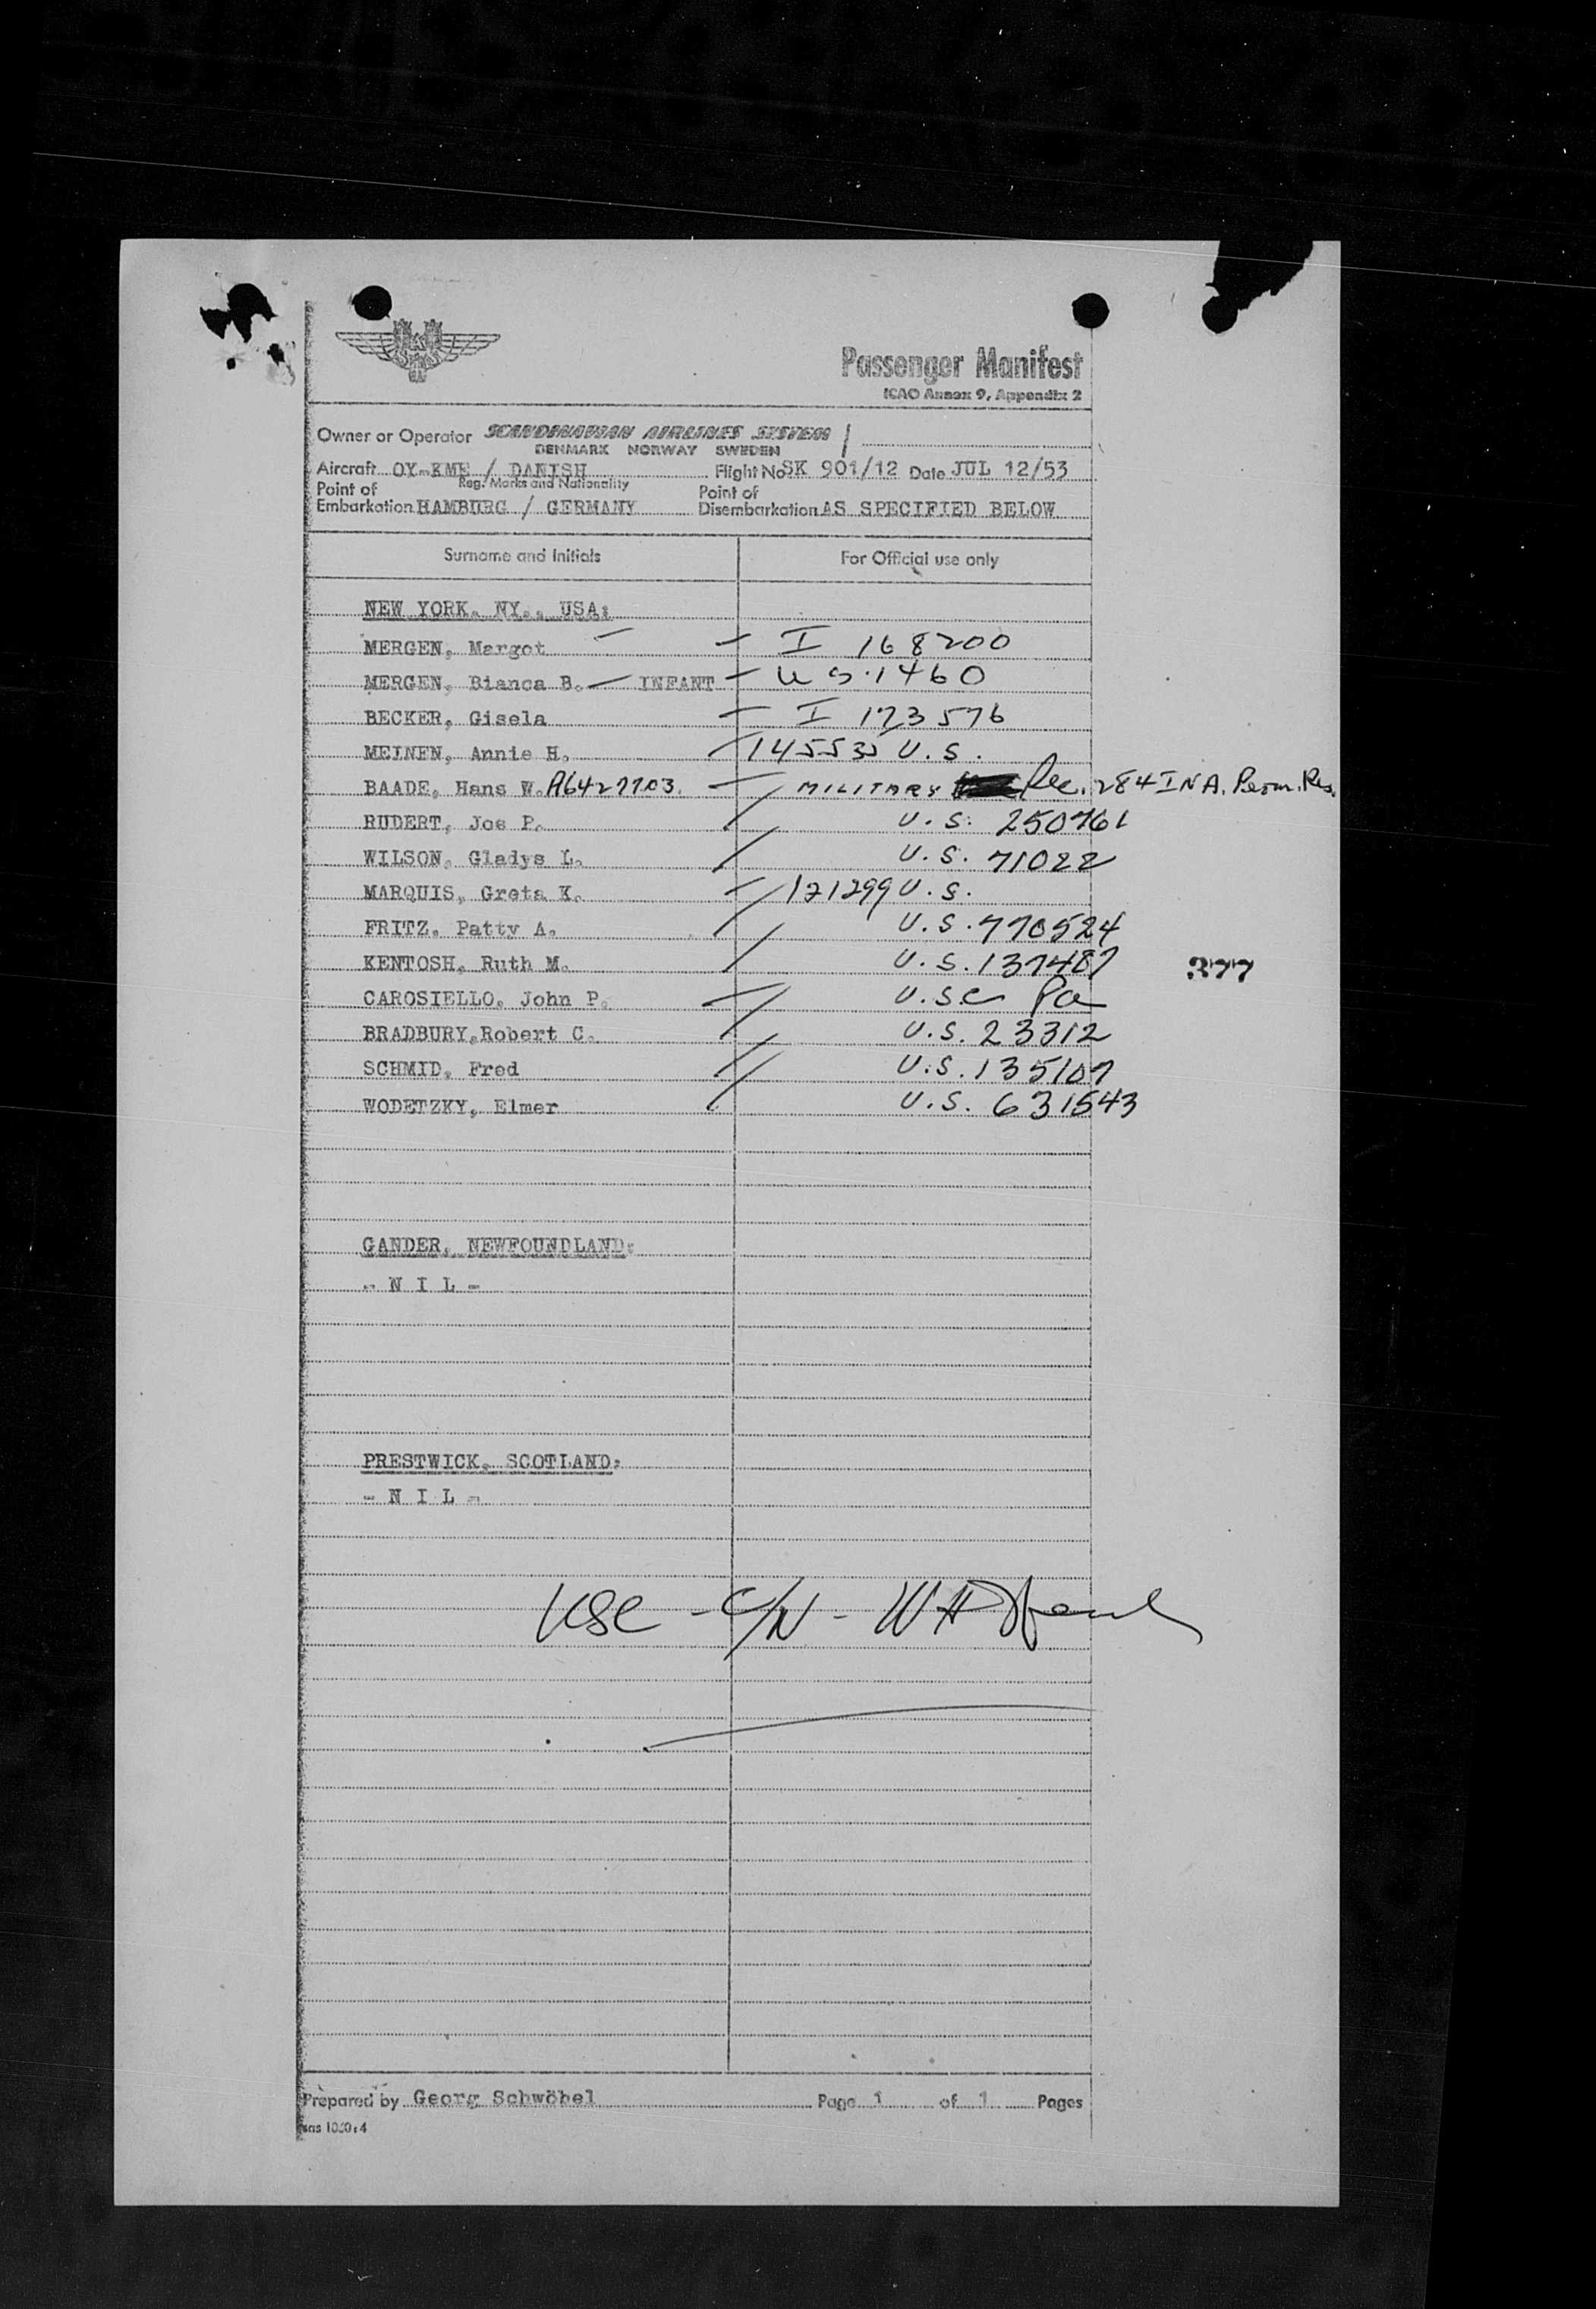 Passenger Manifest
ICAO Annex 9, Appendix 2
Owner or Operator SCANDINAVIAN AIRLINES SYSTEM
DENMARK NORWAY SWEDEN
Aircraft OY-KME / DANISH Flight No SK 901/12 Date JUL 12/53
Reg. Marks and Nationality
Point of Embarkation HAMBURG / GERMANY Point of Disembarkation AS SPECIFIED BELOW
Surname and Initials For Official use only
NEW YORK, NY., USA:
MERGEN, Margot — — I 168200
MERGEN, Bianca B. — INFANT — U S. 1460
BECKER, Gisela — I 173576
MEINEN, Annie H. / 145535 U.S.
BAADE, Hans W. A6427703. — MILITARY Sec. 284 INA. Perm. Res.
RUDERT, Joe P. / U.S. 250761
WILSON, Gladys L. / U.S. 71022
MARQUIS, Greta K. — / 121299 U.S.
FRITZ, Patty A. / U.S. 770524
KENTOSH, Ruth M. / U.S. 137487
377
CAROSIELLO, John P. — / U.S.C Pa
BRADBURY, Robert C. / U.S. 23312
SCHMID, Fred / U.S. 135107
WODETZKY, Elmer / U.S. 631543
GANDER, NEWFOUNDLAND:
- N I L -
PRESTWICK, SCOTLAND:
- N I L -
USC - C/N - W H
Prepared by Georg Schwöbel Page 1 of 1 Pages
sas 1030:4